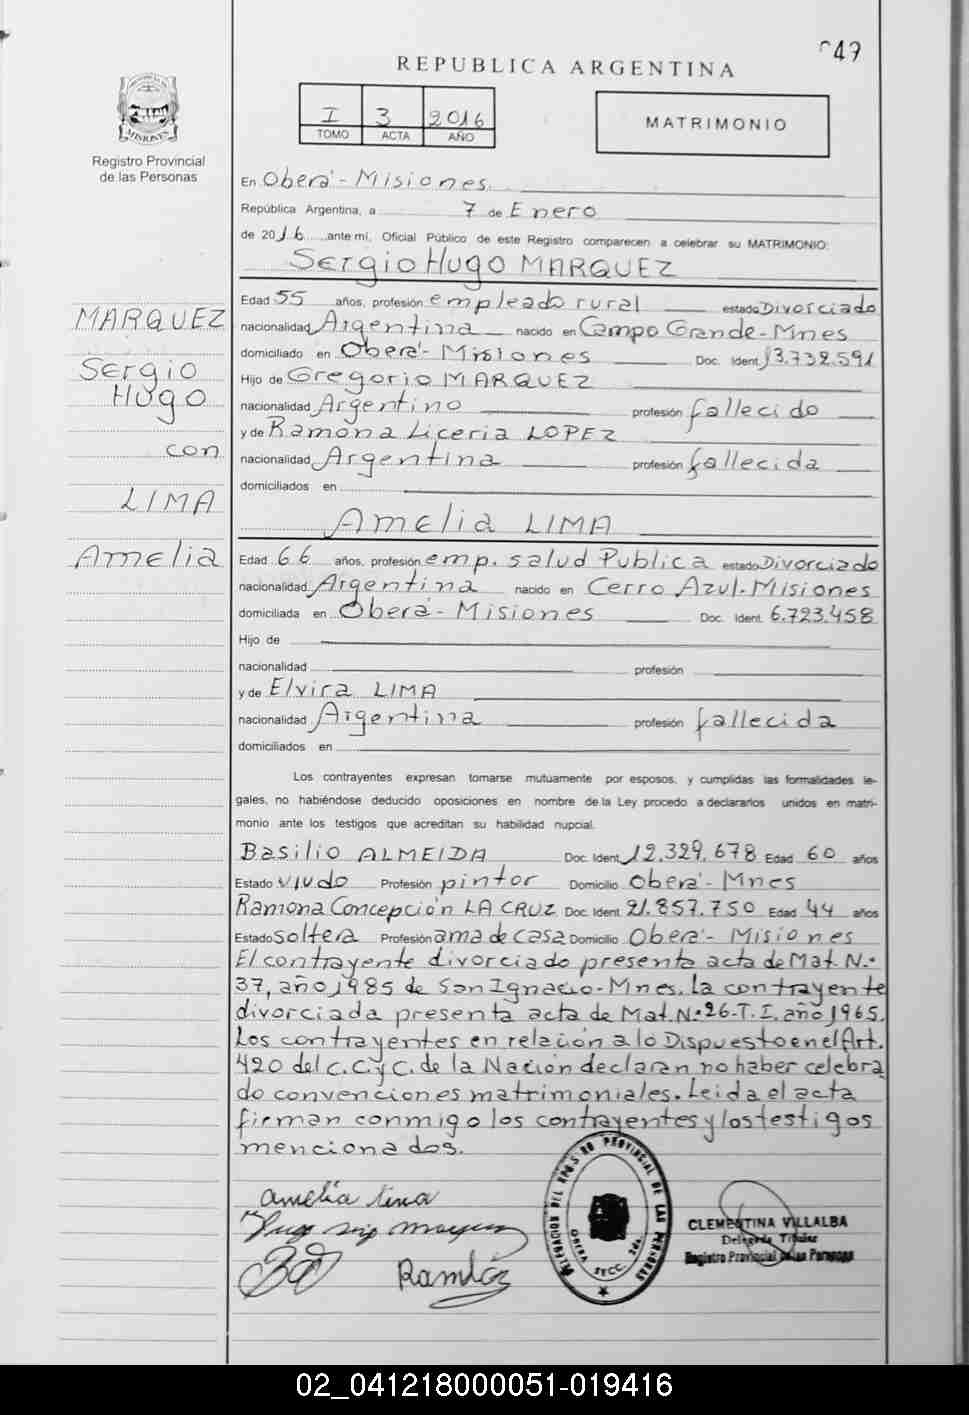 049
REPUBLICA ARGENTINA
I 3 2016
TOMO ACTA AÑO
MATRIMONIO
MISIONES
Registro Provincial
de las Personas
En Oberá - Misiones.
República Argentina, a 7 de Enero
de 2016 ante mí, Oficial Público de este Registro comparecen a celebrar su MATRIMONIO:
Sergio Hugo MARQUEZ
Edad 55 años, profesión empleado rural estado Divorciado
nacionalidad Argentina nacido en Campo Grande - Mnes
domiciliado en Oberá - Misiones Doc. Ident 13.732.591
Hijo de Gregorio MARQUEZ
nacionalidad Argentino profesión fallecido
y de Ramona Liceria LOPEZ
nacionalidad Argentina profesión fallecida
domiciliados en
MARQUEZ
Sergio
Hugo
con
LIMA
Amelia
Amelia LIMA
Edad 66 años, profesión emp. salud Publica estado Divorciado
nacionalidad Argentina nacido en Cerro Azul - Misiones
domiciliada en Oberá - Misiones Doc. Ident. 6.723.458
Hijo de
nacionalidad profesión
y de Elvira LIMA
nacionalidad Argentina profesión fallecida
domiciliados en
Los contrayentes expresan tomarse mutuamente por esposos, y cumplidas las formalidades le-
gales, no habiéndose deducido oposiciones en nombre de la Ley procedo a declararlos unidos en matri-
monio ante los testigos que acreditan su habilidad nupcial.
Basilio ALMEIDA Doc. Ident 12.329.678 Edad 60 años
Estado viudo Profesión pintor Domicilio Oberá - Mnes
Ramona Concepción LA CRUZ Doc. Ident 21.857.750 Edad 44 años
Estado soltera Profesión ama de casa Domicilio Oberá - Misiones
El contrayente divorciado presenta acta de Mat. N.º
37, año 1985 de San Ignacio - Mnes. La contrayente
divorciada presenta acta de Mat. Nº 26-T.I. año 1965.
Los contrayentes en relación a lo Dispuesto en el Art.
420 del C.C.y C. de la Nación declaran no haber celebra
do convenciones matrimoniales. Leida el acta
firman conmigo los contrayentes y los testigos
mencionados.
Amelia Lima
DELEGACION DEL REGISTRO PROVINCIAL DE LAS PERSONAS
OBERA SECC. 2da.
CLEMENTINA VILLALBA
Delegada Titular
Registro Provincial de las Personas
02_041218000051-019416